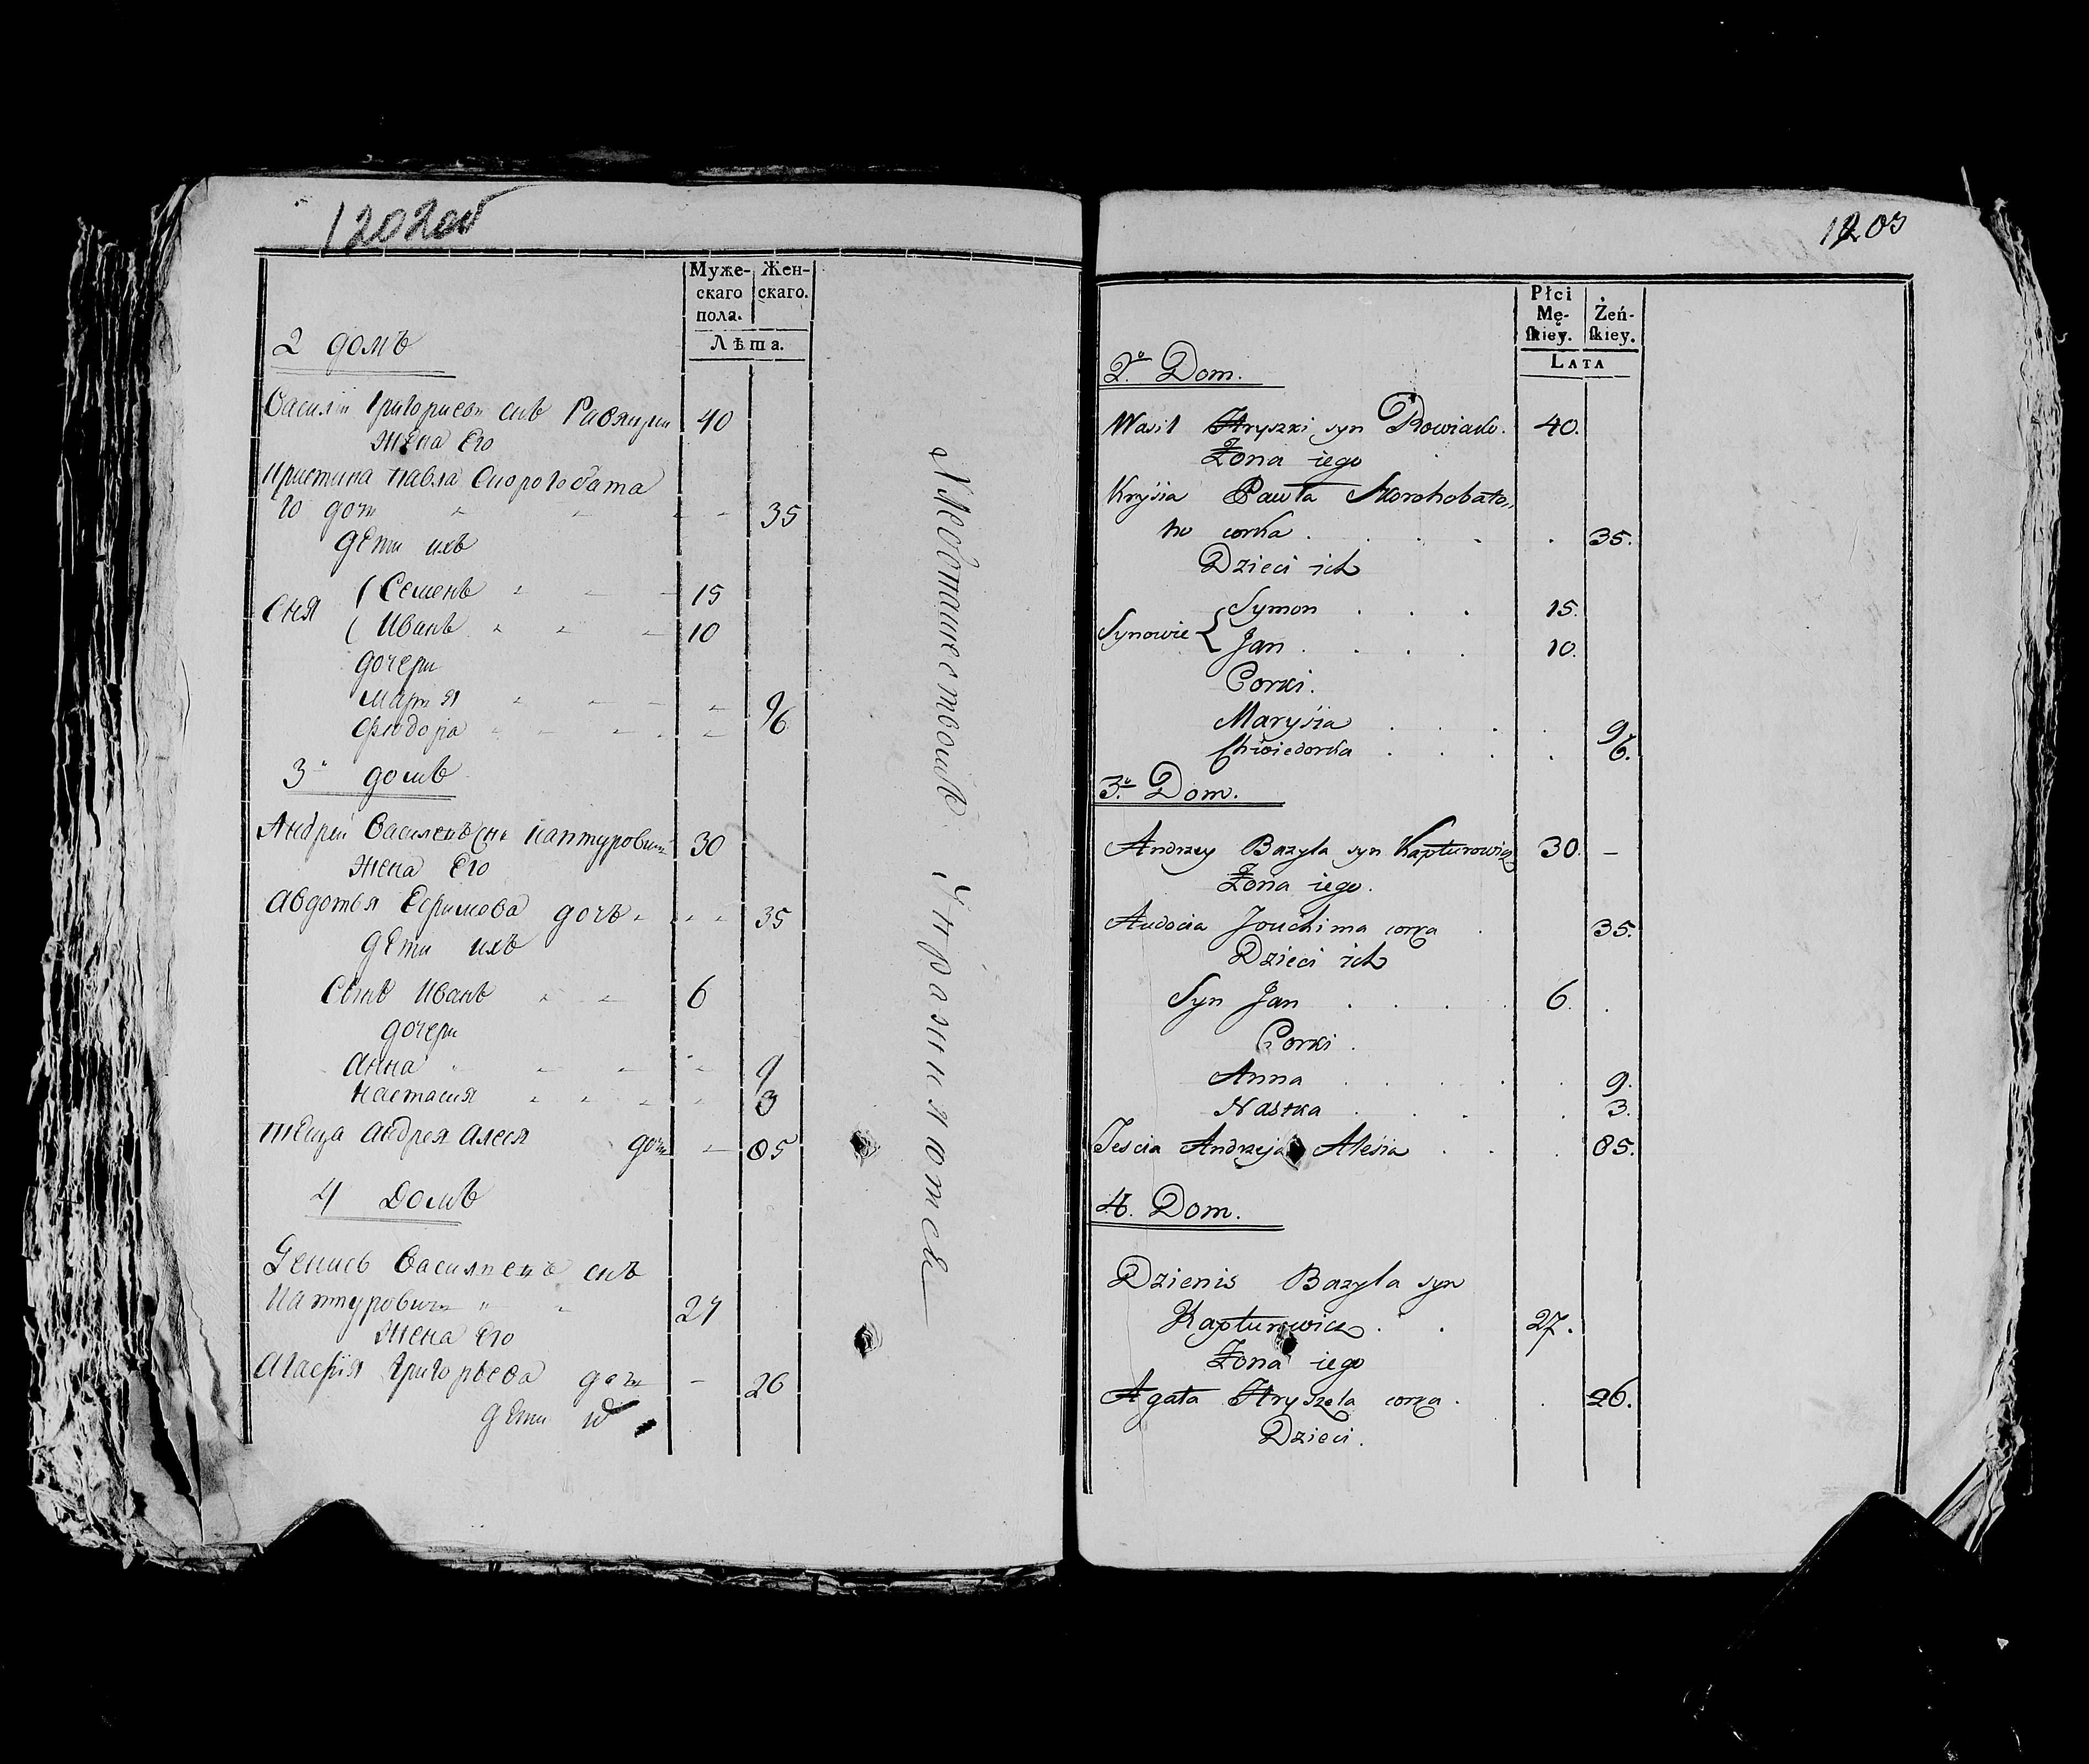 1202об
Муже- Жен-
скаго скаго.
пола.
Лѣта.
2 домъ
Василій Григорьевъ снъ 40
жена Его
Кристина Павла Скорогобата
го доч 35
дети ихъ
Сня (Семенъ 15
( Иванъ 10
дочери
Маря 9
Фіодора 6
3й домъ
Андрей Василевъ снъ Каптуровичь 30
жена Его
Авдотья Ефимова дочь 35
дети ихъ
Сынъ Иванъ 6
дочери
Анна 9
Настасия 3
тиеща Андрея Алеся доч 85
4 Домъ
Денисъ Васильевъ снъ
Каптуровичь 27
жена Его
Агафія Григорьева доч 26
дети
Дворянствомъ
1203
Płci
Mę- Żeń-
skiey. skiey.
LATA
2o Dom.
Wasil Hryszki syn Rowiako. 40.
Żona iego
Krysia Pawła Skorohobato„
ho corka 35.
Dzieci ich
Synowie { Symon 15.
Jan 10.
Corki.
Marysia 9.
Chwiedorka 6.
3o Dom.
Andrzey Bazyla syn Kapturowicz 30. –
Żona iego.
Audocia Jouchima corka 35.
Dzieci ich
Syn Jan 6.
Corki.
Anna 9.
Nastka 3.
Teścia Andrzeja Alesia 85.
4. Dom.
Dzienis Bazyla syn
Kapturowicz 27.
Żona iego
Agata Hryszela corka 26.
Dzieci.